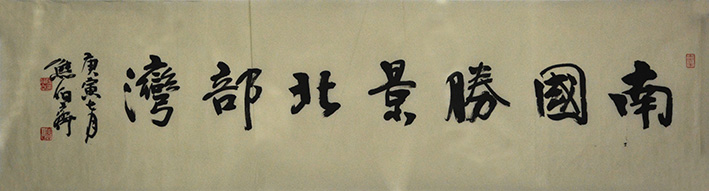 南國勝景北部灣
庚寅七月
熊伯齊